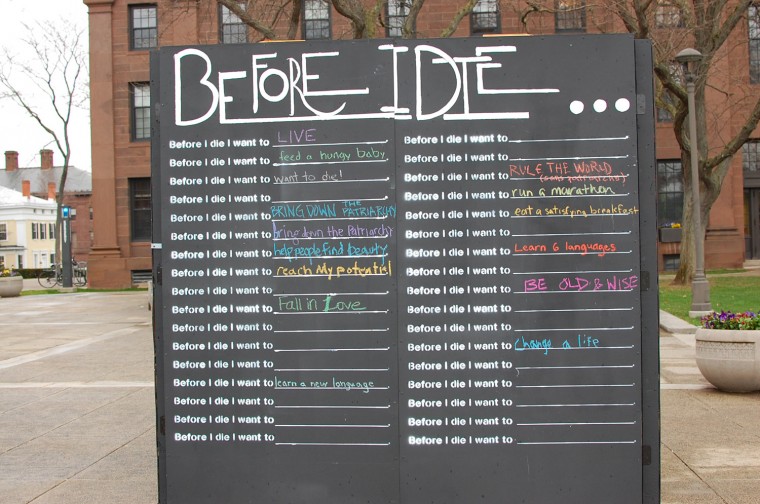 BEFORE I DIE ...
Before I die I want to LIVE
Before I die I want to feed a hungy baby
Before I die I want to want to die!
Before I die I want to
Before I die I want to BRING DOWN THE PATRIARCHY
Before I die I want to bring down the Patriarchy
Before I die I want to help people find beauty
Before I die I want to reach My potential
Before I die I want to
Before I die I want to Fall in Love
Before I die I want to
Before I die I want to
Before I die I want to
Before I die I want to learn a new language
Before I die I want to
Before I die I want to
Before I die I want to
Before I die I want to
Before I die I want to
Before I die I want to RULE THE WORLD
Before I die I want to run a marathon
Before I die I want to eat a satisfying breakfast
Before I die I want to
Before I die I want to Learn 6 languages
Before I die I want to
Before I die I want to BE OLD & WISE
Before I die I want to
Before I die I want to
Before I die I want to Change a life
Before I die I want to
Before I die I want to
Before I die I want to
Before I die I want to
Before I die I want to